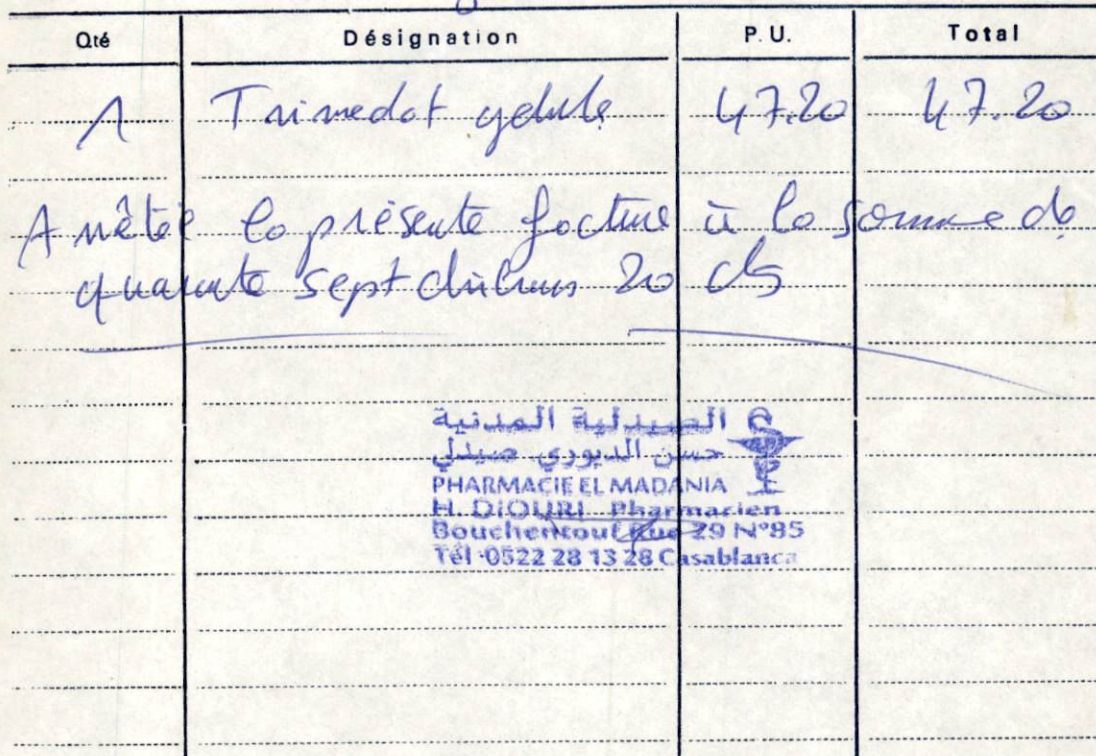 Qté Désignation P.U. Total
1 Trimedat gelule 47.20 47.20
Arrêtée la présente facture à la somme de
quarante sept dirhams 20 cts
الصيدلية المدنية
حسن الديوري صيدلي
PHARMACIE EL MADANIA
H. DIOURI Pharmacien
Bouchentouf Rue 29 N°85
Tél :0522 28 13 28 Casablanca